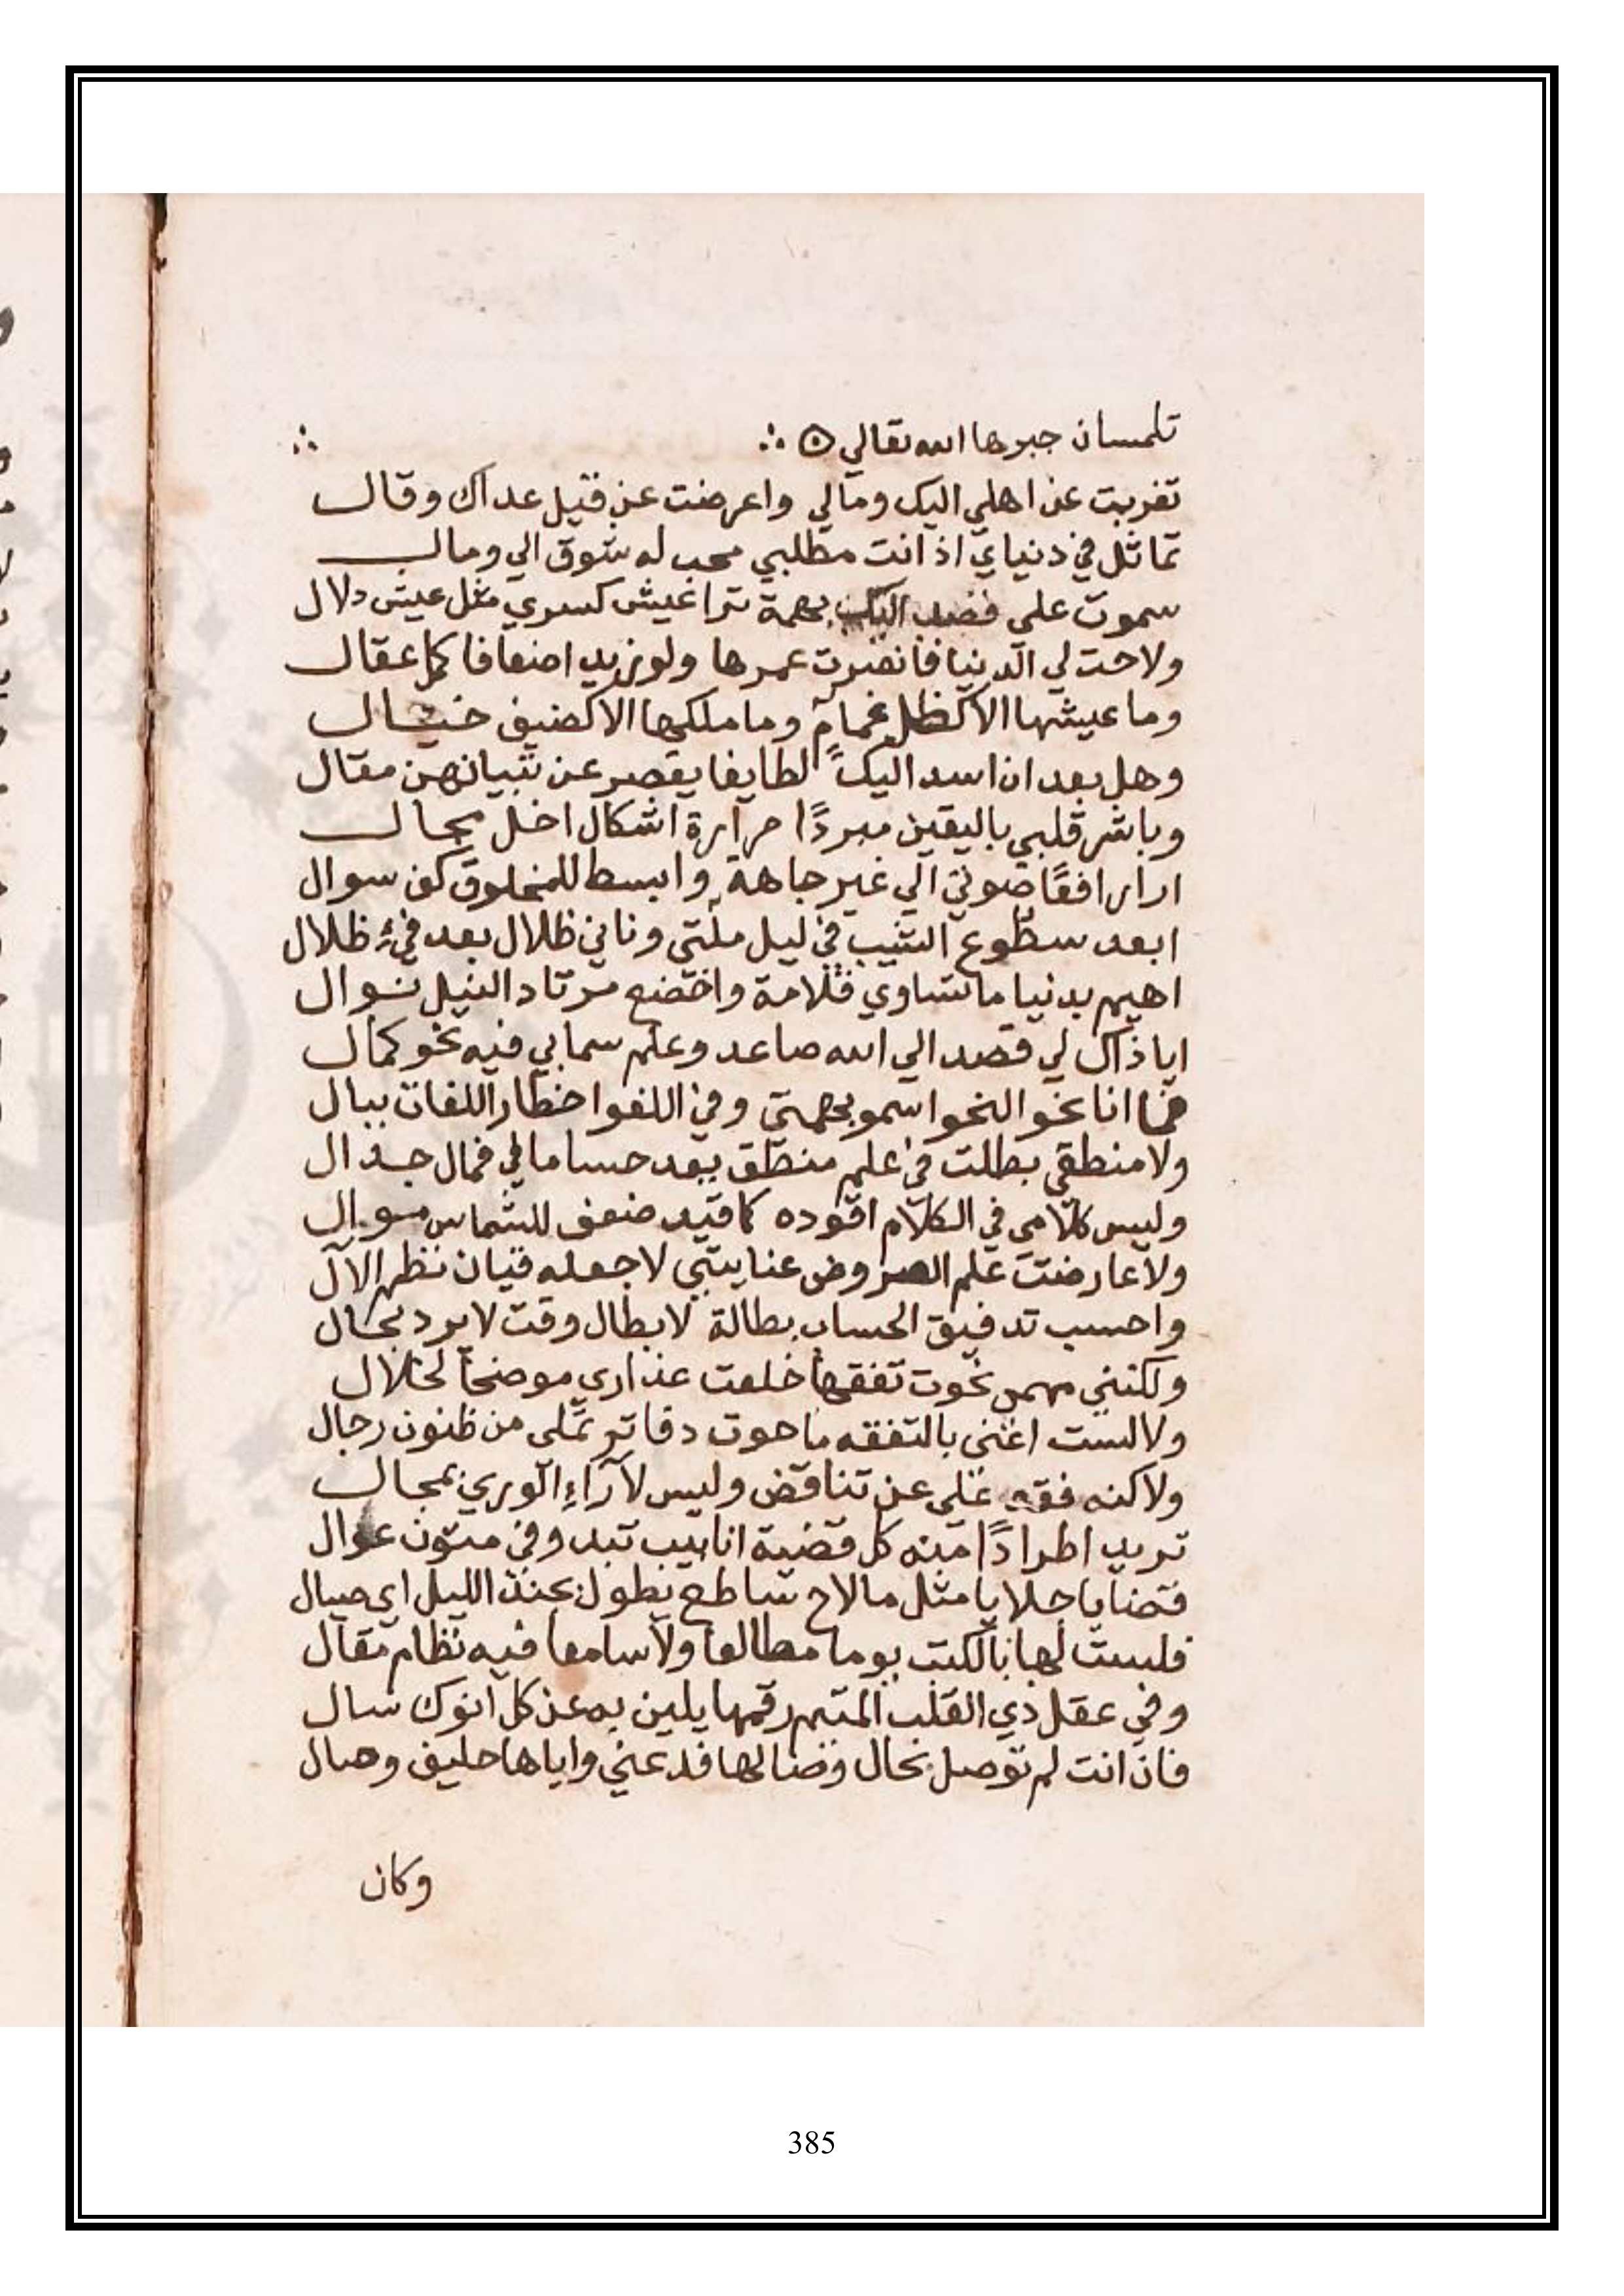 تلمسان جبرها الله تعالي
تغربت عن اهلي اليك ومالي واعرضت عن قيل عداك وقال
تماثل في دنياي اذ انت مطلبي محب له شوق الي ومال
سموت علي قصد اليك بهمة ترا عيش كسري مثل عيش دلال
ولاحت لي الدنيا فانضرت عمرها ولو زيد اضعافا كحل عقال
وما عيشها الا كظل غمام وما ملكها الا كضيف خيال
وهل بعد ان اسد اليك لطايفا يقصر عن تبيانهن مقال
وباشر قلبي باليقين مبردًا حرارة اشكال اخل بجال
ارا رافعًا صوتي الي غير جاهه وابسط للمخلوق كف سوال
ابعد سطوع الشيب في ليل ملتي وناني ظلال بعد فيء ظلال
اهيم بدنيا ما تساوي قلامة واخضع مرتاد النيل نوال
ايا ذاك لي قصد الي الله صاعد وعلم سما بي فيه نحو كمال
فما انا نحو النحو اسمو بهمتي وفي اللغو اخطار اللغات ببال
ولا منطقي بطلت في علم منطق يعد حساما لي فمال جدال
وليس كلامي في الكلام اقوده كما قيد ضعف للشماس سوال
ولا عارضت علم العروض عنايتي لا جعله قيان نظم الآل
واحسب تدقيق الحساب بطالة لابطال وقت لا يرد بحال
ولكنني مهمى نحوت تفقها خلعت عذارى موضحا لخلال
ولا لست اعني بالتفقه ما حوت دفاتر تملى من ظنون رجال
ولاكنه فقه علي عن تناقض وليس لآراء الوري بمجال
تريد اطرادًا منه كل قضية انابيب تبدو في متون عوال
قضايا جلايا مثل ما لاح ساطع يطول بجنح الليل اي صيال
فلست لها بالكتب يوما مطالعا ولا سامعا فيه نظام مقال
وفي عقل ذي القلب المتيم رقمها يلين به عن كل انوك سال
فان انت لم توصل بحال وصالها فدعني واياها حليف وصال
وكان
385